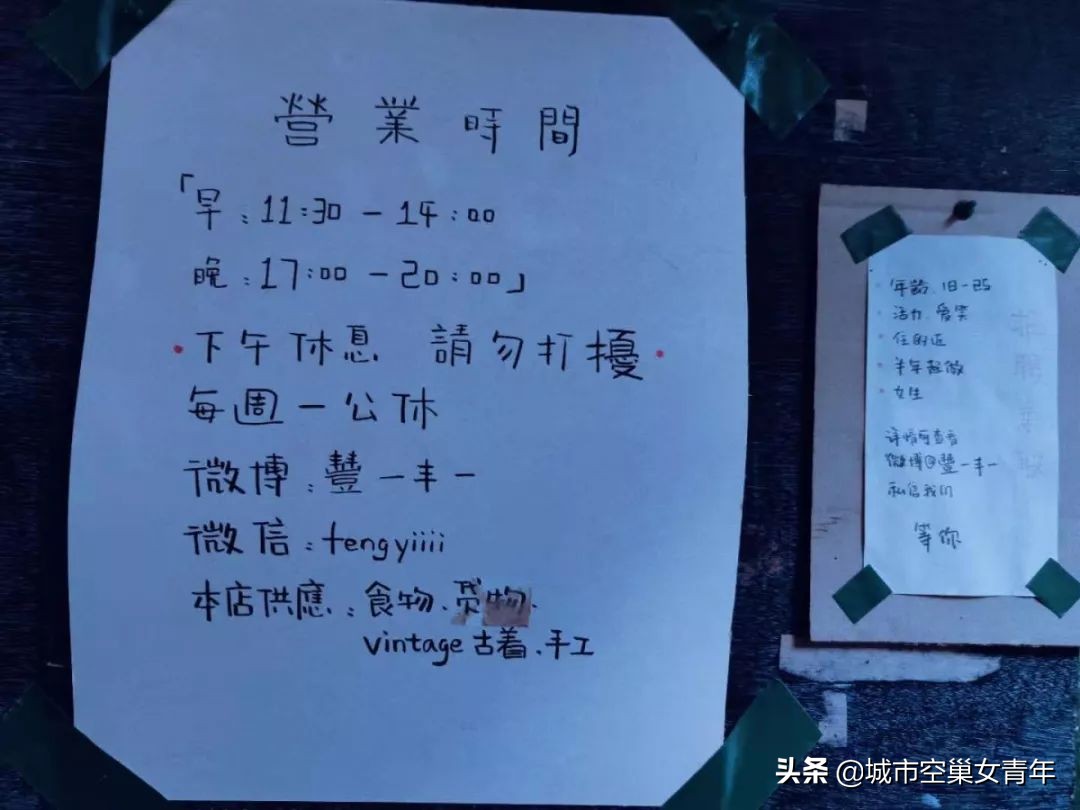 營業時間
「早:11:30-14:00
晚:17:00-20:00」
·下午休息 請勿打擾·
每週一公休
微博:豐一丰一
微信:fengyiiii
本店供應:食物、货物、
vintage 古着、手工
年龄、18-25
活力、爱笑
住附近
半年起做
女生
详情可查看
微博@豐一丰一
私信我们
等你
头条 @城市空巢女青年